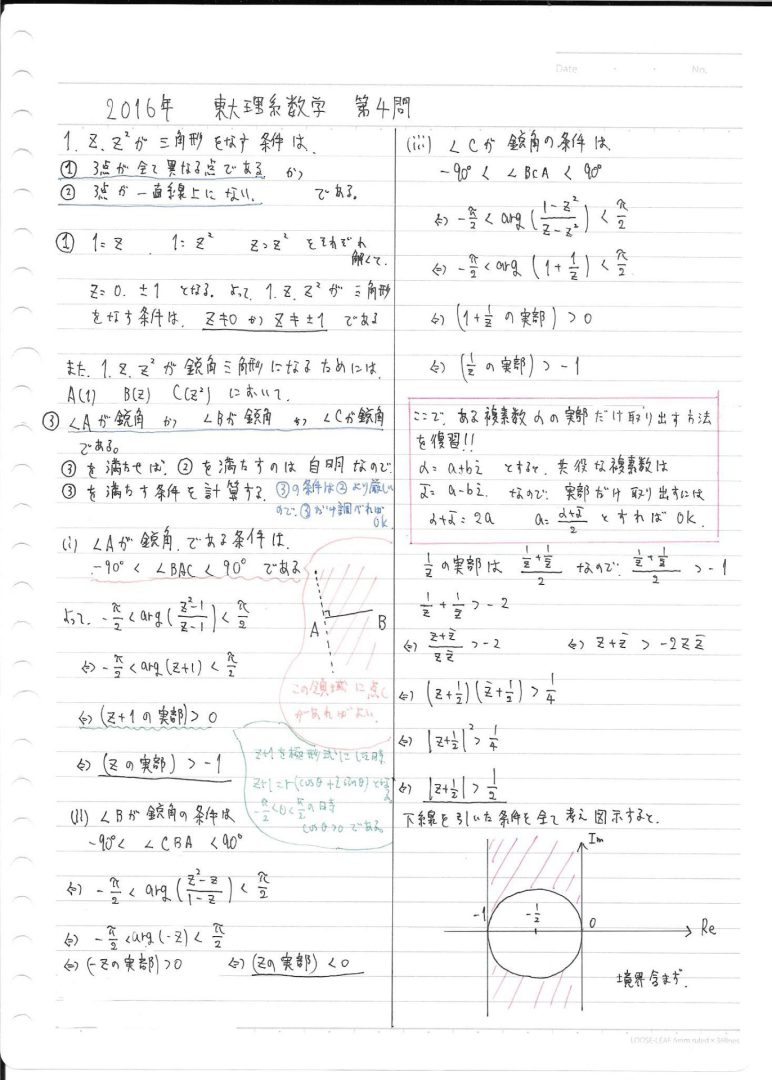 Date ・ ・ No.
2016年 東大理系数学 第4問
1. z. z²が三角形をなす条件は、
① 3点が全て異なる点である かつ
② 3点が一直線上にない. である。
① 1=z . 1=z² z=z² をそれぞれ
解くて.
z=0. ±1 となる。よって. 1. z. z² が三角形
をなす条件は. z≠0 かつ z≠±1 である
また. 1. z. z² が鋭角三角形になるためには.
A(1) B(z) C(z²) において.
③ ∠Aが鋭角 かつ ∠Bが鋭角 かつ ∠Cが鋭角
である。
③を満たせば. ②を満たすのは自明なので.
③を満たす条件を計算する. ③の条件は②より厳しい
ので. ③だけ調べれば
OK.
(i) ∠Aが鋭角. である条件は.
-90° < ∠BAC < 90° である
よって. -π/2 < arg(z²-1/z-1) < π/2
⇔ -π/2 < arg(z+1) < π/2
⇔ (z+1の実部) > 0
⇔ (zの実部) > -1
A B
この領域に点C
があればよい.
z+1を極形式にした時
z+1=r(cosθ+isinθ)となる
-π/2<θ<π/2の時
cosθ>0である。
(ii) ∠Bが鋭角の条件は
-90°< ∠CBA <90°
⇔ -π/2 < arg(z²-z/1-z) < π/2
⇔ -π/2 < arg(-z) < π/2
⇔ (-zの実部)>0 ⇔ (zの実部) < 0
(iii) ∠Cが鋭角の条件は
-90° < ∠BCA < 90°
⇔ -π/2 < arg(1-z²/z-z²) < π/2
⇔ -π/2 < arg(1+1/z) < π/2
⇔ (1+1/z の実部) > 0
⇔ (1/z の実部) > -1
ここで. ある複素数αの実部だけ取り出す方法
を復習!!
α=a+bi とすると. 共役な複素数は
ᾱ=a-bi. なので. 実部だけ取り出すには
α+ᾱ=2a a=α+ᾱ/2 とすればOK.
1/z の実部は 1/z+1/z̄/2 なので. 1/z+1/z̄/2 > -1
1/z + 1/z̄ > -2
⇔ z+z̄/zz̄ > -2 ⇔ z+z̄ > -2zz̄
⇔ (z+1/2)(z̄+1/2) > 1/4
⇔ |z+1/2|² > 1/4
⇔ |z+1/2| > 1/2
下線を引いた条件を全て考え図示すると.
Im
-1 -1/2 0 Re
境界含まず.
LOOSE-LEAF 6mm ruled × 36lines